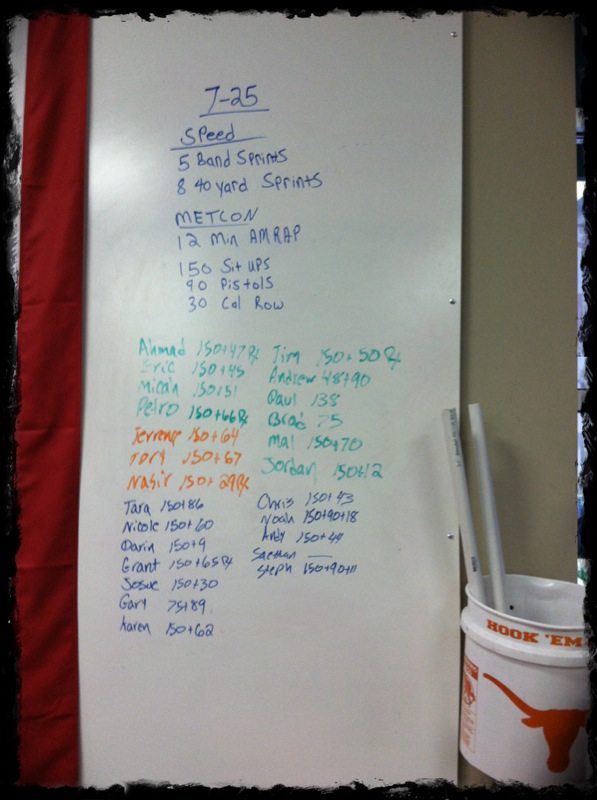 7-25
Speed
5 Band Sprints
8 40 yard Sprints
METCON
12 Min AMRAP
150 Sit ups
90 Pistols
30 Cal Row
Ahmad 150+47 Rx
Eric 150+45
Micah 150+51
Petro 150+66 Rx
Terrence 150+64
Tory 150+67
Nasir 150+29 Rx
Tim 150+50 Rx
Andrew 48+90
Paul 138
Brad 75
Mal 150+70
Jordan 150+12
Tara 150+86
Nicole 150+60
Darin 150+9
Grant 150+65 Rx
Josue 150+30
Gary 75+89
Karen 150+62
Chris 150+43
Noah 150+90+18
Andy 150+44
Steph 150+90+11
HOOK 'EM